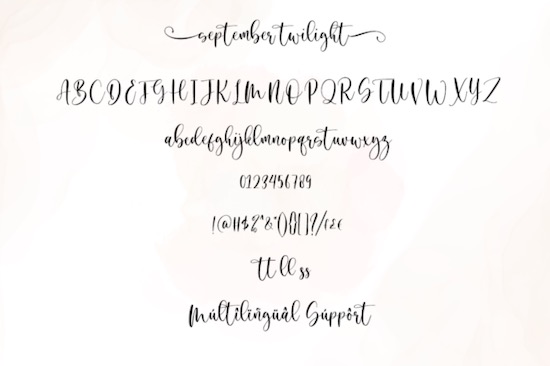 september twilight
ABCDEFGHIJKLMNOPQRSTUVWXYZ
abcdefghijklmnopqrstuvwxyz
0123456789
tt ll ss
Múltilïñgüâl Súppôrt